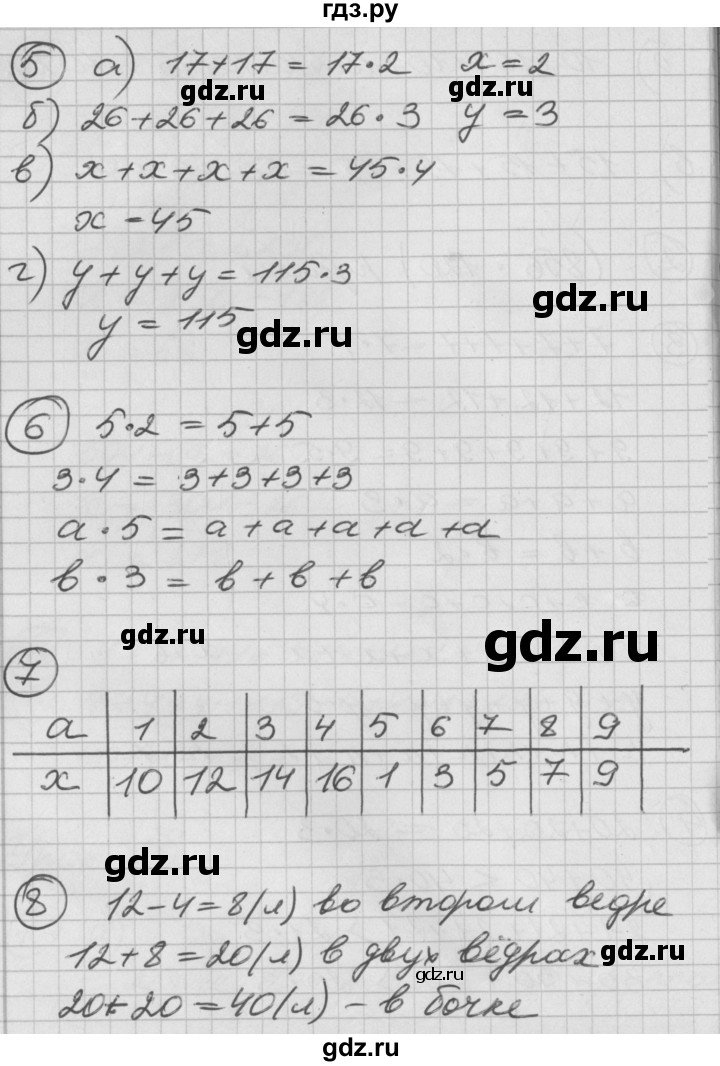 гдз.ру
5 а) 17+17 = 17·2 x = 2
gdz.ru gdz.ru
б) 26+26+26 = 26·3 y = 3
в) x+x+x+x = 45·4
x = 45
г) y+y+y = 115·3
y = 115
gdz.ru gdz.ru
6 5·2 = 5+5
3·4 = 3+3+3+3
a·5 = a+a+a+a+a
в·3 = в+в+в
gdz.ru gdz.ru
7
a 1 2 3 4 5 6 7 8 9
x 10 12 14 16 1 3 5 7 9
gdz.ru
8 12-4=8(л) во втором ведре
12+8=20(л) в двух вёдрах
gdz.ru gdz.ru
20+20=40(л) – в бочке
gdz.ru